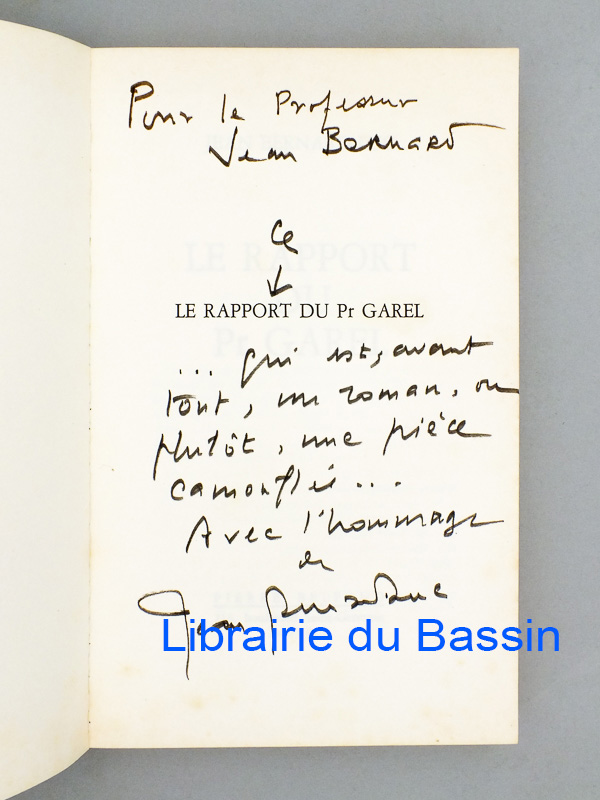 Pour le Professeur
Jean Bernard
Ce
LE RAPPORT DU Pr GAREL
... qui est, avant
tout, un roman, ou
plutôt, une pièce
camouflée...
Avec l'hommage
de
Jean
Librairie du Bassin